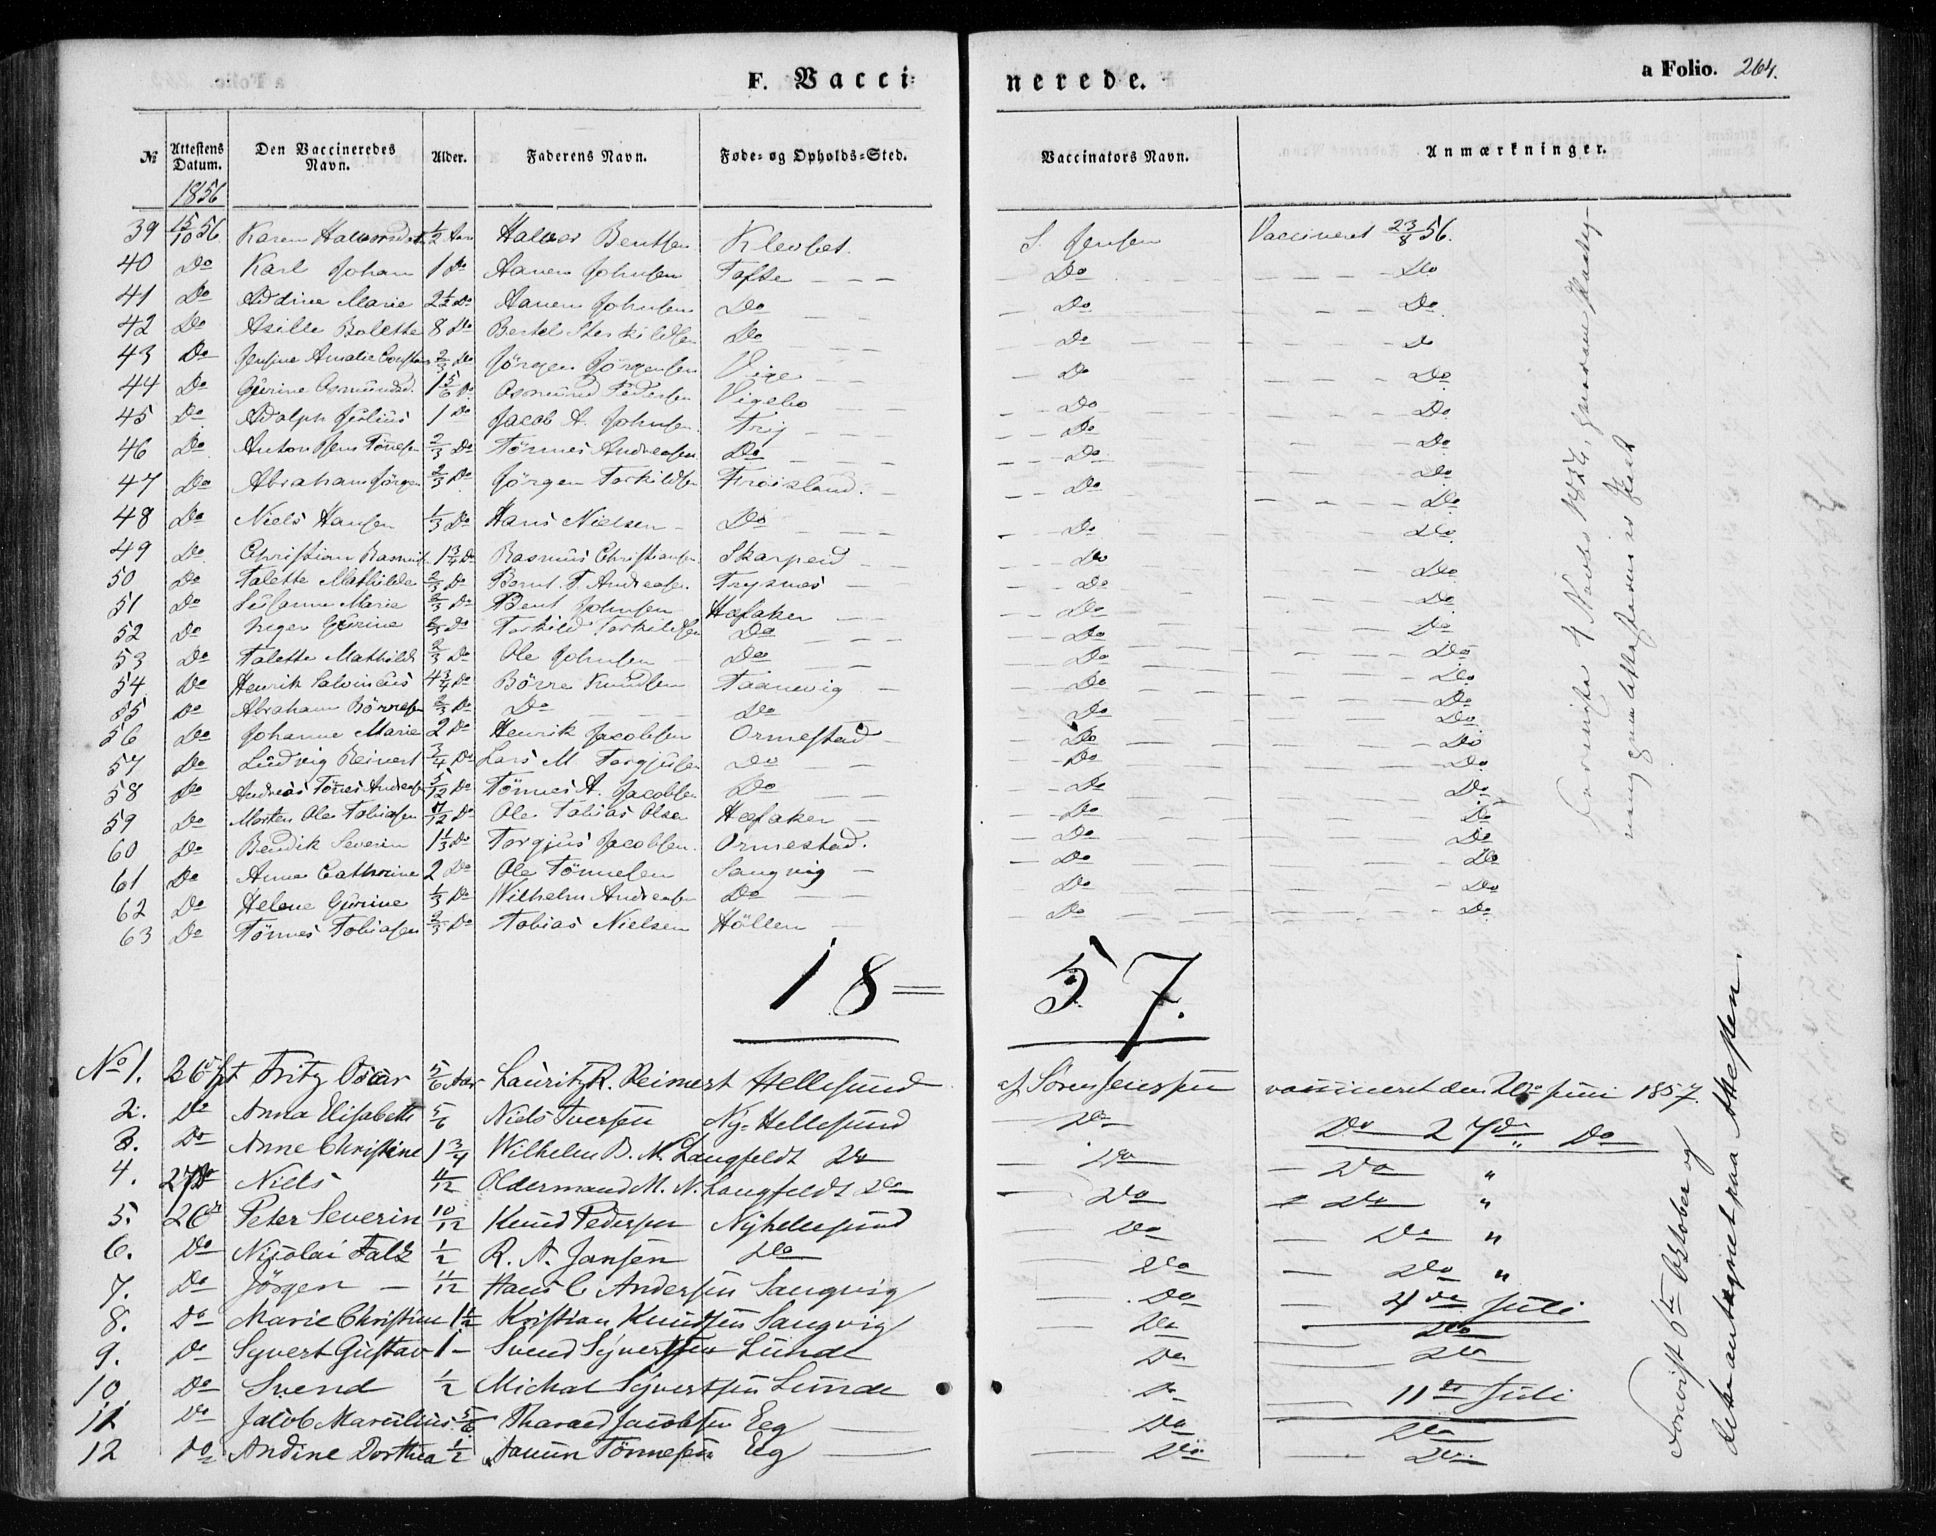 F. Vacci=nerede.
a Folio. 264.
№ Attestens Datum. Den Vaccineredes Navn. Alder. Faderens Navn. Føde= og Opholds=Sted. Vaccinators Navn. Anmærkninger.
1856
39 15/10 56. Karen Halvorsdt. 1/2 Aar Halvor Bentsen Klevbet. S. Jensen Vaccineret 23/8 56.
40 Do Karl Johan 1 Do Aanen Johnsen Tofte Do Do
41 Do Addine Marie 2 1/2 Do Aanen Johnsen Do Do Do
42 Do Asille Bolette 8 Do Bertel Do Do Do
43 Do Jensine Amalie 2/3 Do Jörgen Jörgensen Vige Do Do
44 Do Gurine Osmundsd. 1 5/6 Do Osmund Pedersen Vigebo Do Do
45 Do Adolph Julius 1 Do Jacob A. Johnsen Do Do
46 Do Anton Jens Tönnesen 2/3 Do Tönnes Andreasen Do Do Do
47 Do Abraham Jörgen 2/3 Do Jörgen Torkildsen Fröisland. Do Do
48 Do Niels Hansen 1/3 Do Hans Nielsen Do Do Do
49 Do Christian Rasmus 1 3/4 Do Rasmus Christiansen Skarpeid Do Do
50 Do Talette Mathilde 2/3 Do Bernt T. Andreasen Trysnes Do Do
51 Do Susanne Marie 2/3 Do Bent Johnsen Hafaker Do Do
52 Do Inger Gurine 2/3 Do Torkild Torkildsen Do Do Do
53 Do Talette Mathilde 2/3 Do Ole Johnsen Do Do Do
54 Do Henrik Salvinius 4 3/4 Do Börre Knudsen Taanevig Do Do
55 Do Abraham Börresen 2/3 Do Do Do Do Do
56 Do Johanne Marie 2 Do Henrik Jacobsen Ormestad Do Do
57 Do Ludvig Reinert 3/4 Do Lars M. Torgjusen Do Do Do
58 Do Andreas Tönnes Andreasen 5/12 Do Tönnes A. Jacobsen Do Do Do
59 Do Morten Ole Tobiasen 7/12 Do Ole Tobias Olsen Hafaker Do Do
60 Do Bendik Severin 1 1/3 Do Torgjus Jacobsen Ormestad. Do Do
61 Do Anne Cathrine 2 Do Ole Tönnesen Sangvig Do Do
62 Do Helene Gurine 1/3 Do Wilhelm Andreasen Do Do Do
63 Do Tönnes Tobiasen 2/3 Do Tobias Nielsen Höllen Do Do
18=57.
No 1. 26 Fritz Oscar 5/6 Aar Lauritz R. Reimert Hellesund af Sören Jenssen vaccineret den Juni 1857.
2. Do Anna Elisabeth 5/6 Niels Iversen Ny-Hellesund Do Do 27de Do
3. Do Anne Christine 1 3/4 Wilhelm B. N. Langfeldt Do Do Do "
4. 27 Niels 11/12 Oldermand M. N. Langfeldt Do Do Do "
5. 26 Peter Severin 10/12 Knud Pedersen Nyhellesund Do Do "
6. Do Nicolai Falk 1/2 R. A. Jansen Do Do Do "
7. Do Jörgen 11/12 Hans C. Andersen Sangvig Do 4de Juli
8. Do Marie Christine 1 1/2 Kristian Knudsen Sangvig Do Do
9. Do Syvert Gustav 1 Svend Syvertsen Lunde Do Do
10. Do Svend 1/2 Michal Syvertsen Lunde Do 11te Juli
11 Do Jacob Marcilius 5/6 Jacobsen Eeg Do Do
12 Do Andine Dorthea 1/2 Tönnesen Eeg Do Do
Forevist 6te October og